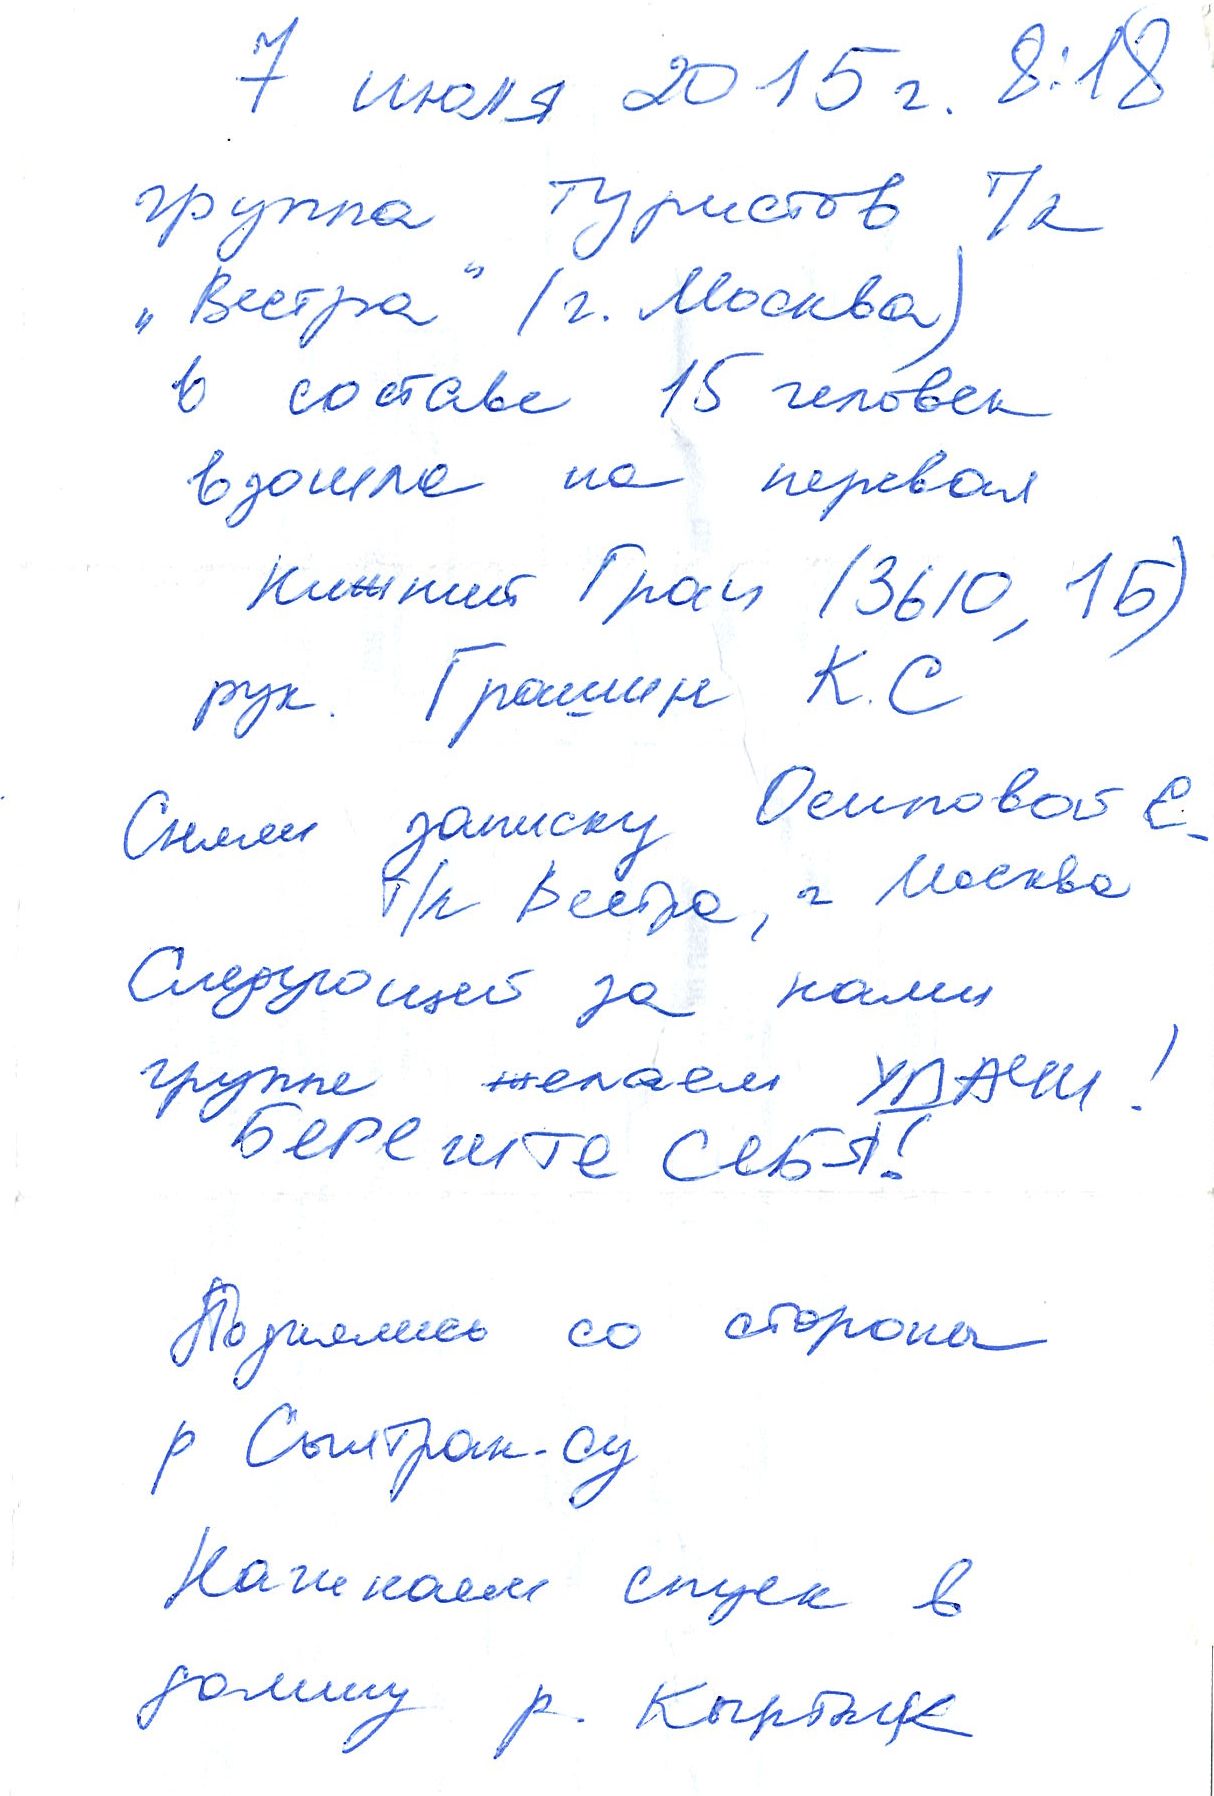 7 июля 2015 г. 8:18
группа туристов т/к
„Вестра" (г. Москва)
в составе 15 человек
взошла на перевал
Нижний Грац (3610, 1Б)
рук. Грашин К.С
Сняли записку Осиповой Е.
т/к Вестра, г Москва
Следующей за нами
группе желаем УДАЧИ!
БЕРЕГИТЕ СЕБЯ!
Поднялись со стороны
р Сылтран-су
Начинаем спуск в
долину р. Кыртык